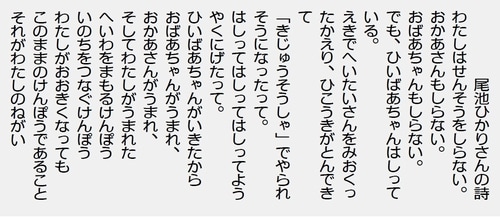 尾池ひかりさんの詩
わたしはせんそうをしらない。
おかあさんもしらない。
おばあちゃんもしらない。
でも、ひいばあちゃんはしって
いる。
えきでへいたいさんをみおくっ
たかえり、ひこうきがとんでき
て
「きじゅうそうしゃ」でやられ
そうになったって。
はしってはしってはしってよう
やくにげたって。
ひいばあちゃんがいきたから
おばあちゃんがうまれ、
おかあさんがうまれ、
そしてわたしがうまれた
へいわをまもるけんぽう
いのちをつなぐけんぽう
わたしがおおきくなっても
このままのけんぽうであること
それがわたしのねがい